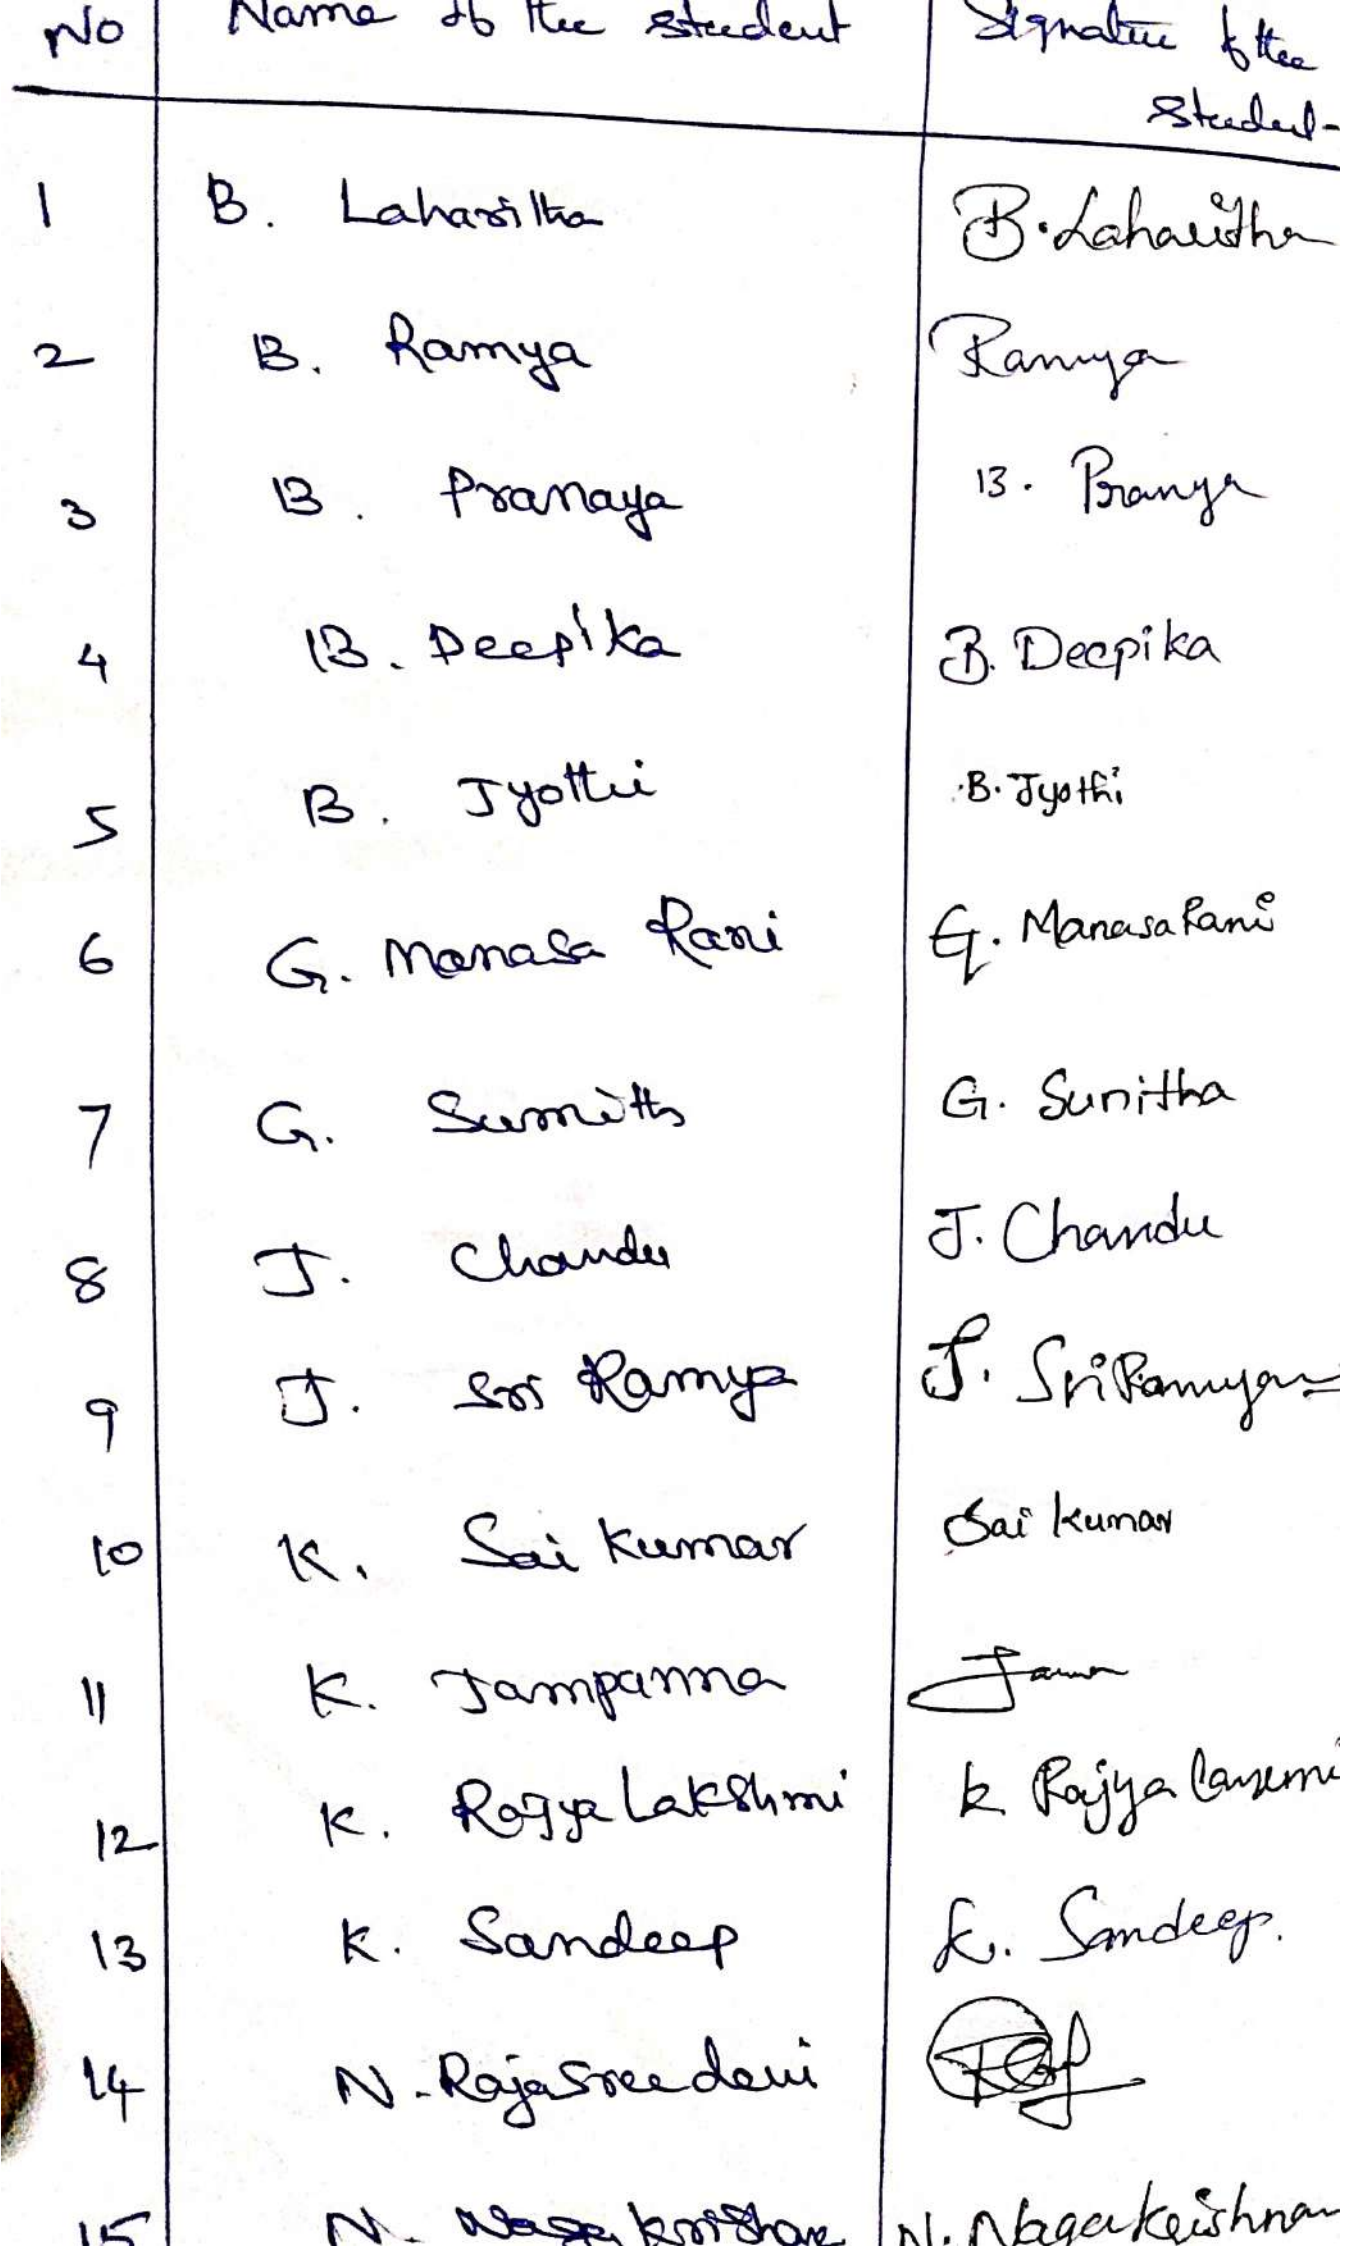 No Name of the student Signature of the
student
1 B. Laharitha B. Laharitha
2 B. Ramya Ramya
3 B. Pranaya B. Pranya
4 B. Deepika B. Deepika
5 B. Jyothi B. Jyothi
6 G. Manasa Rani G. Manasa Rani
7 G. Sunitha G. Sunitha
8 J. Chandu J. Chandu
9 J. Sri Ramya J. Sri Ramya
10 K. Sai Kumar Sai Kumar
11 K. Jampanna
12 K. Rajya Lakshmi K Rajya Laxmi
13 K. Sandeep K. Sandeep.
14 N. Rajasree devi
15 N. Naga Krishna N. Naga Krishna